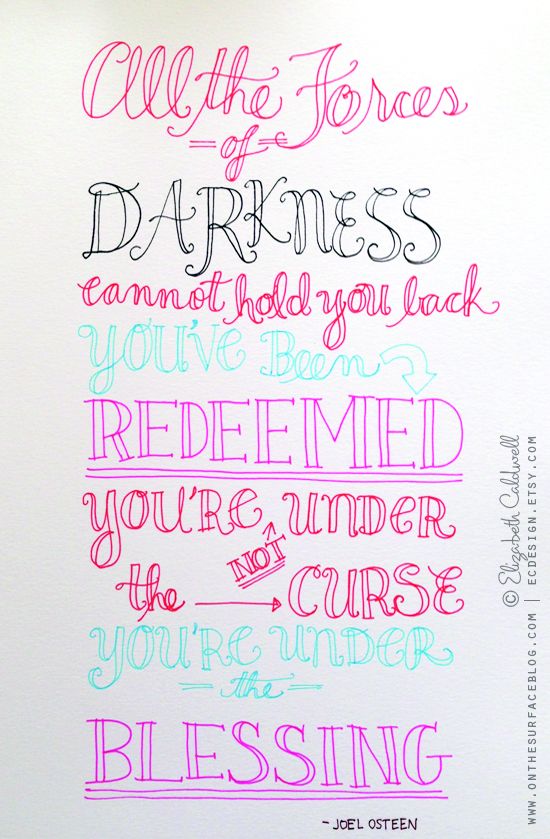 All the Forces
= of =
DARKNESS
cannot hold you back
You've Been
REDEEMED
you're NOT under
the → CURSE
you're under
- the -
BLESSING
- JOEL OSTEEN
© Elizabeth Caldwell
WWW.ONTHESURFACEBLOG.COM | ECDESIGN.ETSY.COM